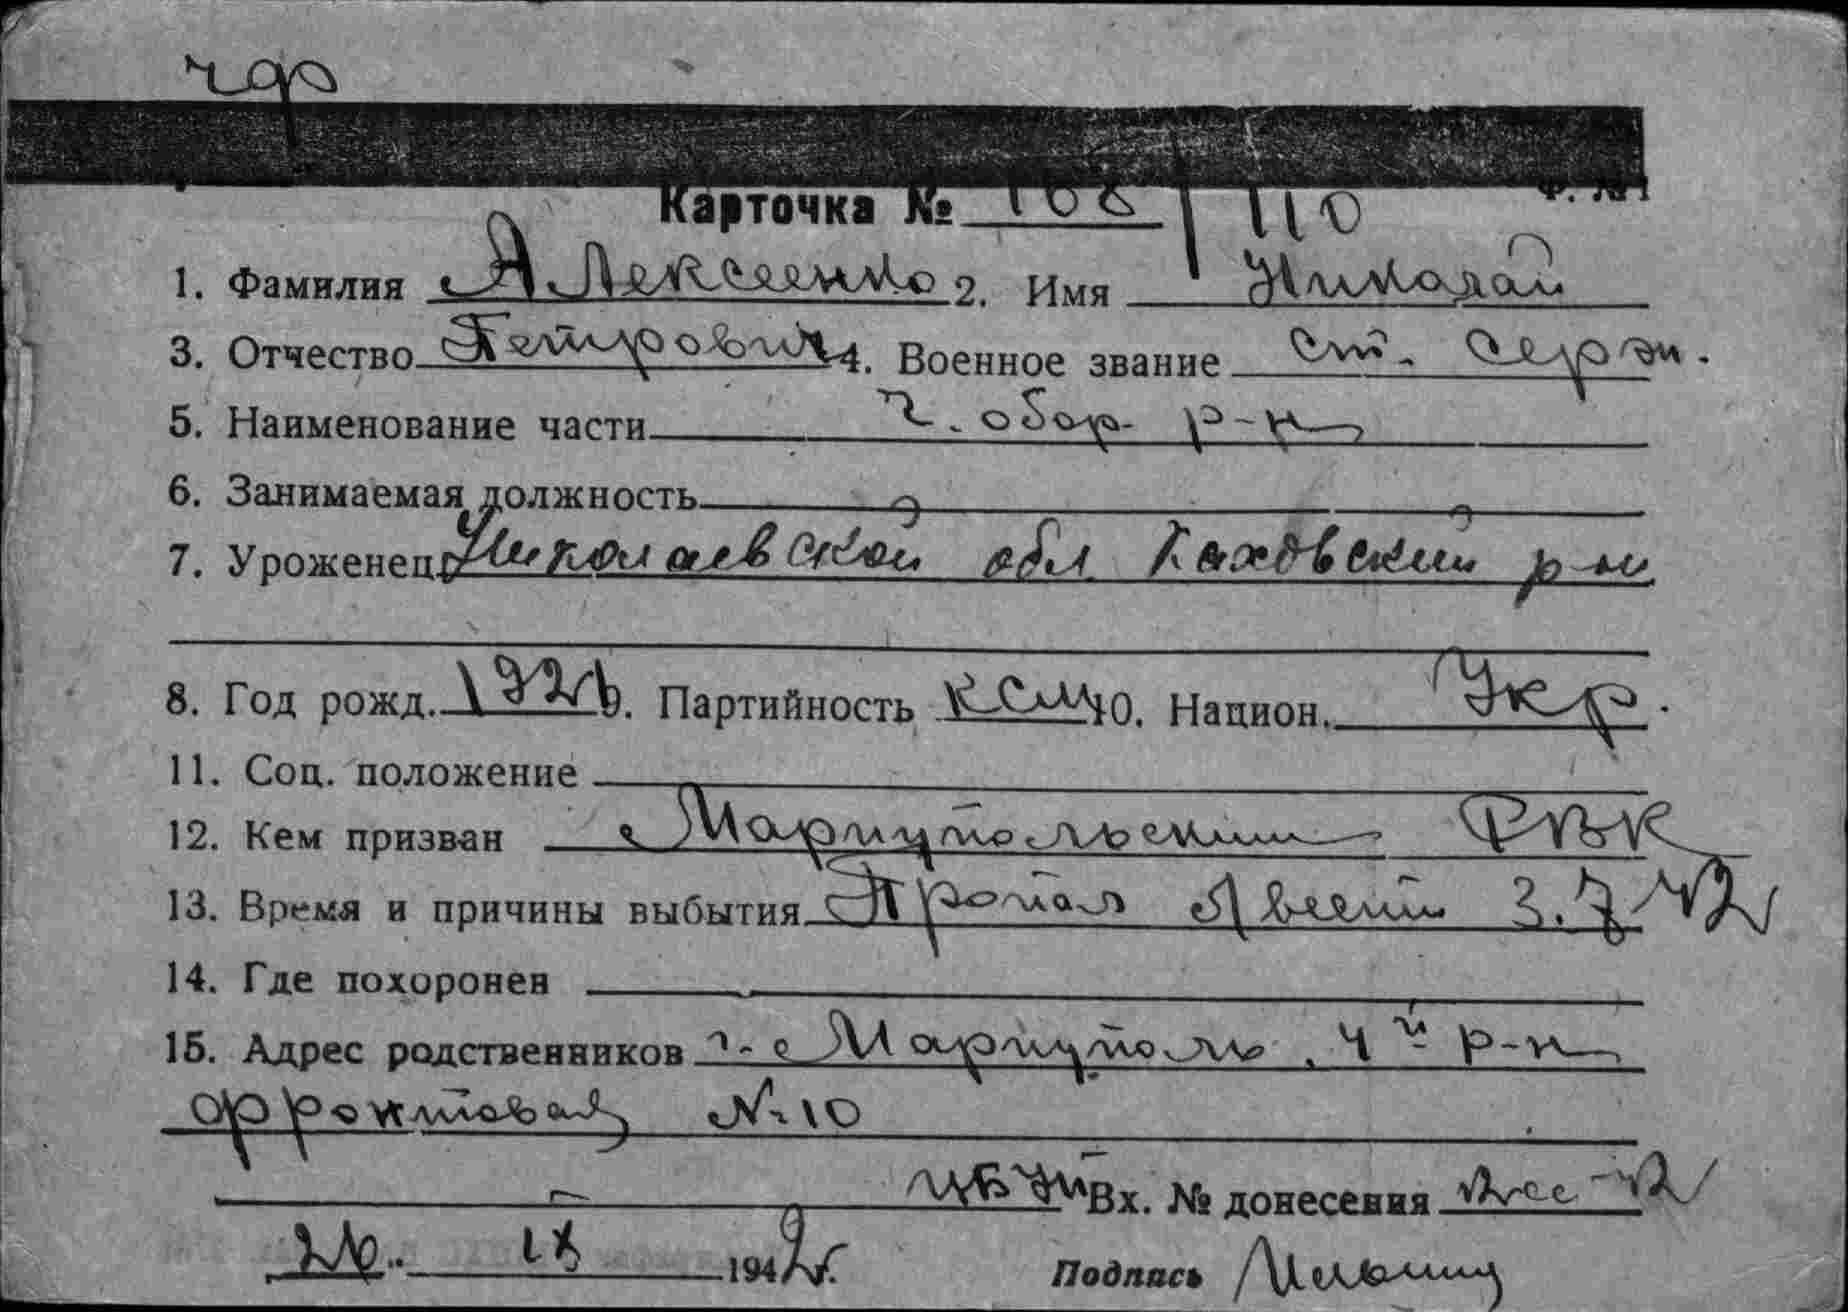 чф
Карточка № 168/110 Ф. №1
1. Фамилия Алексеенко 2. Имя Николай
3. Отчество Петрович 4. Военное звание ст. серж.
5. Наименование части г. обор. р-н
6. Занимаемая должность
7. Уроженец Николаевской обл Каховский р-н
8. Год рожд. 1921 9. Партийность КСМ 10. Национ. Укр.
11. Соц. положение
12. Кем призван Мариупольским РВК
13. Время и причины выбытия Пропал без вести 3.7.42
14. Где похоронен
15. Адрес родственников г. Мариуполь, 4й р-н
фронтовая № 10
Вх. № донесения
26. IX 1942 г. Подпись